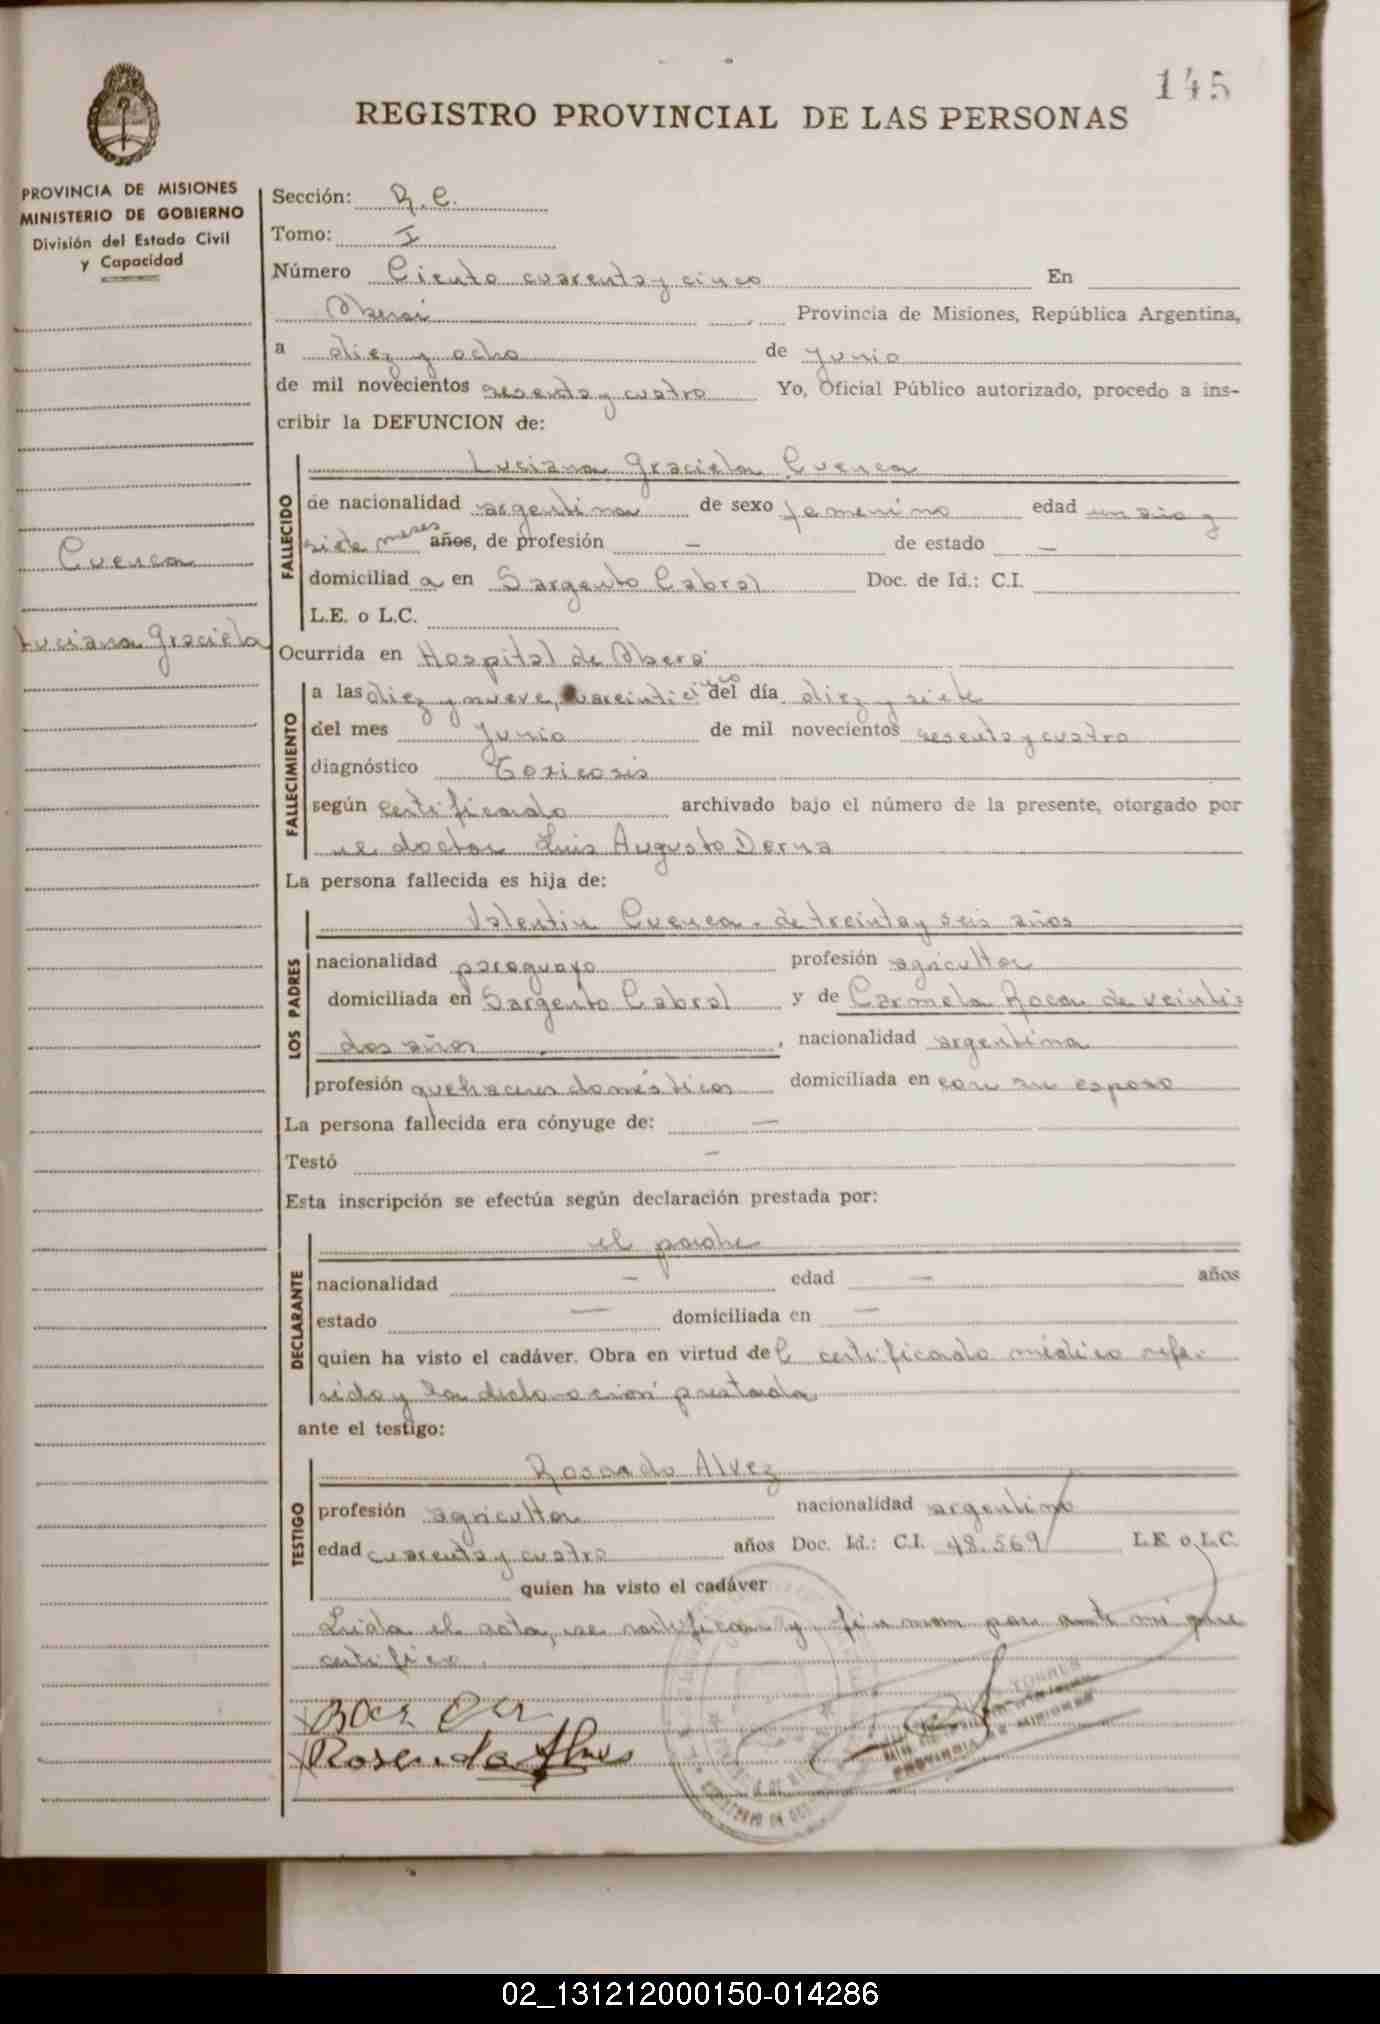 145
REGISTRO PROVINCIAL DE LAS PERSONAS
PROVINCIA DE MISIONES
MINISTERIO DE GOBIERNO
División del Estado Civil
y Capacidad
Cuenca
Luciana Graciela
Sección: R.C.
Tomo: I
Número Ciento cuarenta y cinco En
Oberá Provincia de Misiones, República Argentina,
a diez y ocho de Junio
de mil novecientos sesenta y cuatro Yo, Oficial Público autorizado, procedo a ins-
cribir la DEFUNCION de:
FALLECIDO
Luciana Graciela Cuenca
de nacionalidad argentina de sexo femenino edad un año y
siete meses años, de profesión — de estado —
domiciliad a en Sargento Cabral Doc. de Id.: C.I.
L.E. o L.C.
Ocurrida en Hospital de Oberá
FALLECIMIENTO
a las diez y nueve, del día diez y siete
del mes Junio de mil novecientos sesenta y cuatro
diagnóstico Toxicosis
según certificado archivado bajo el número de la presente, otorgado por
el doctor Luis Augusto Derna
La persona fallecida es hija de:
LOS PADRES
Valentin Cuenca - de treinta y seis años
nacionalidad paraguayo profesión agricultor
domiciliada en Sargento Cabral y de Carmela Roca de veinti-
dos años, nacionalidad argentina
profesión quehaceres domésticos domiciliada en con su esposo
La persona fallecida era cónyuge de: —
Testó —
Esta inscripción se efectúa según declaración prestada por:
DECLARANTE
el padre
nacionalidad — edad — años
estado — domiciliada en —
quien ha visto el cadáver. Obra en virtud del certificado médico refe-
rido y la declaración prestada
ante el testigo:
TESTIGO
Rosendo Alvez
profesión agricultor nacionalidad argentino
edad cuarenta y cuatro años Doc. Id.: C.I. 48.569 L.E. o L.C.
quien ha visto el cadáver
Leida el acta, se ratifican y firman por ante mi que
certifico.
Rosendo Alves
PROVINCIA DE MISIONES
02_131212000150-014286